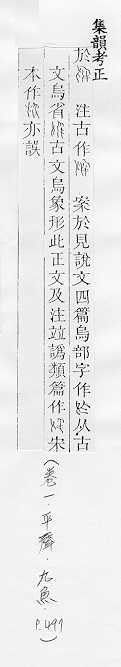 集韻考正
於 注古作 案於見說文四篇烏部字作 从古
文烏省 古文烏象形此正文及注竝譌類篇作 宋
本作 亦誤
(卷一.平聲.九魚.P.499)